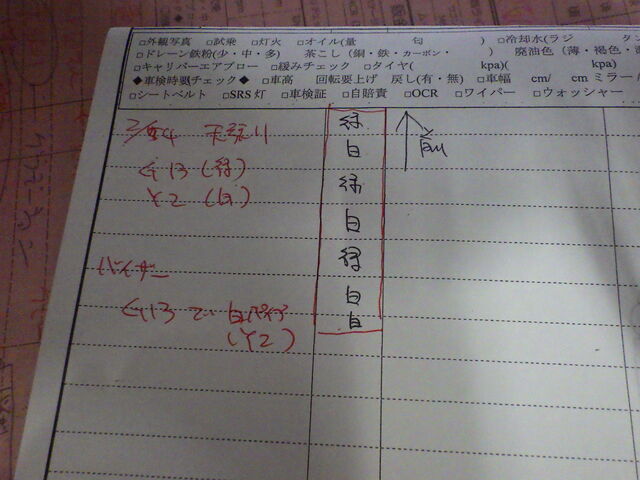 □外観写真 □試乗 □灯火 □オイル(量 匂 ) □冷却水(ラジ タン
□ドレーン鉄粉(少・中・多) 茶こし(銅・鉄・カーボン・ ) 廃油色(薄・褐色・
□キャリパーエアブロー □緩みチェック □タイヤ( kpa)( kpa)
◆車検時要チェック◆ □車高 回転要上げ 戻し(有・無) □車幅 cm/ cm ミラー
□シートベルト □SRS灯 □車検証 □自賠責 □OCR □ワイパー □ウォッシャー
天張り
G13(緑)
Y2(白)
バイザー
G13で 白パイプ
(Y2)
緑
白
緑
白
緑
白
白
前